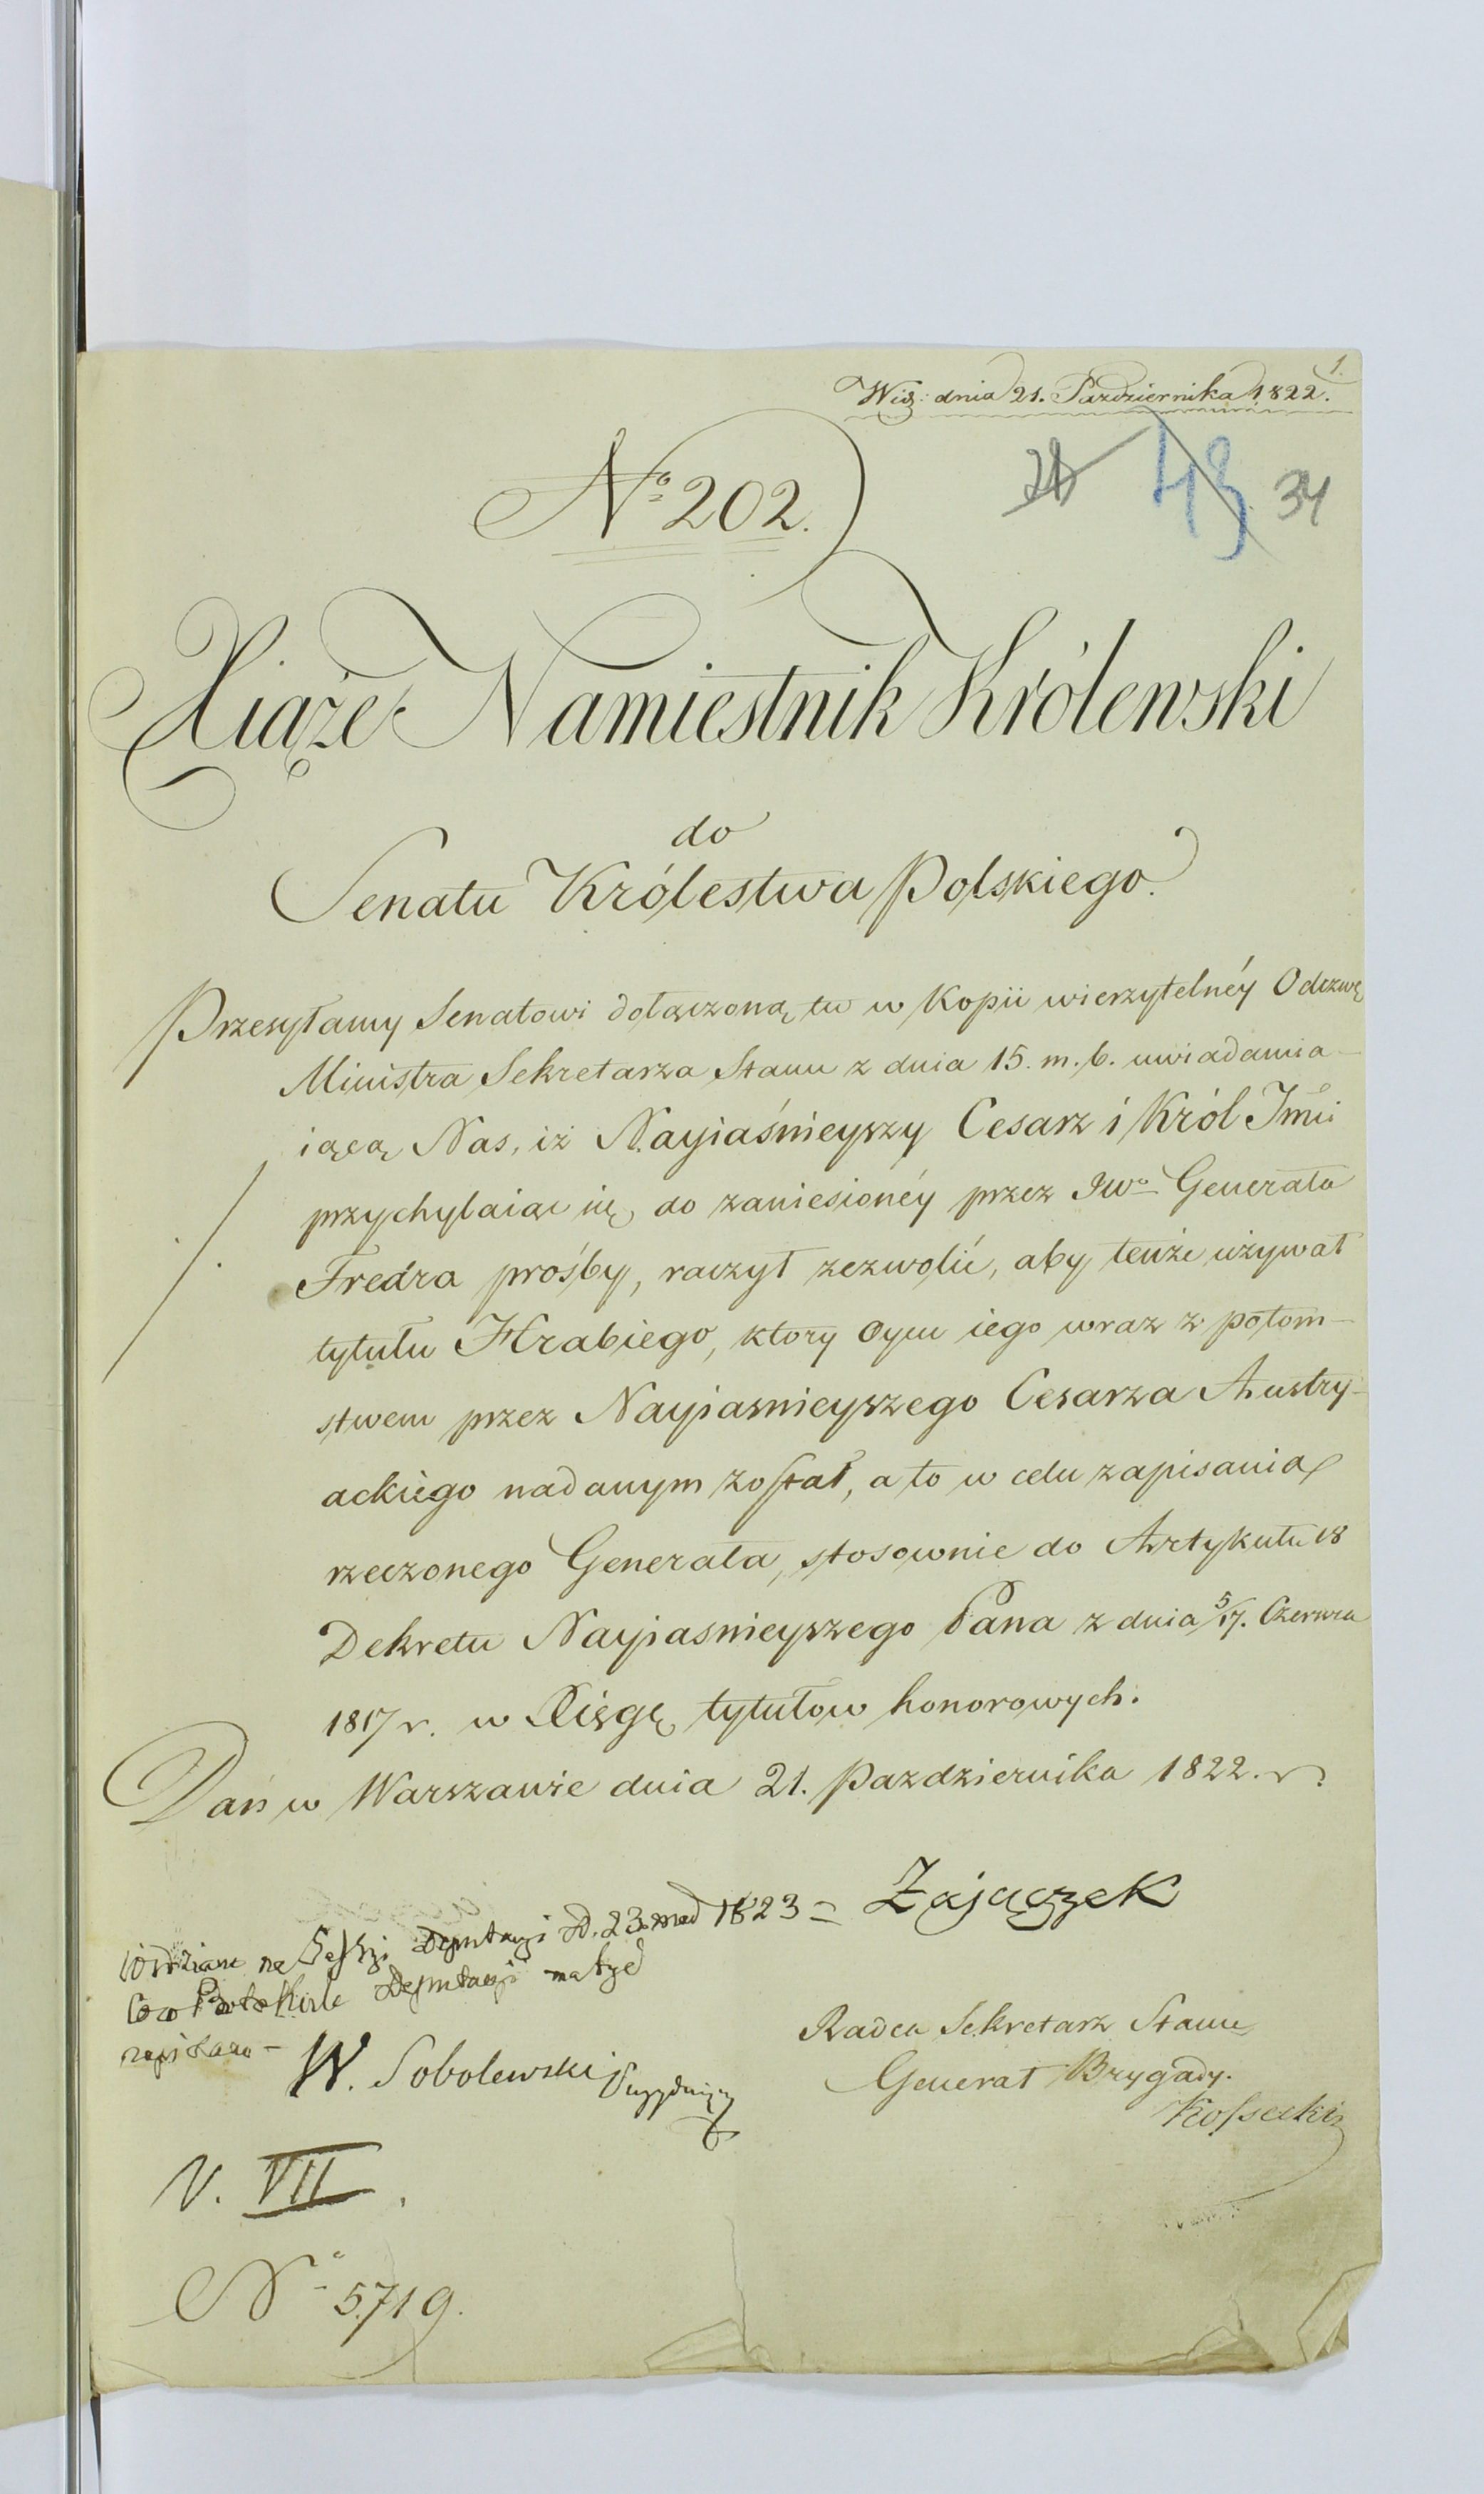 1.
Wid: dnia 21. Pazdziernika 1822.
No 202.
43 34
Xiąże Namiestnik Królewski
do
Senatu Królestwa Polskiego.
Przesyłamy Senatowi dołączoną tu w Kopii wierzytelnéy Odezwę
Ministra Sekretarza Stanu z dnia 15. m. b. uwiadamia-
iącą Nas, iż Nayiaśnieyszy Cesarz i Król Jmć
przychylaiąc się do zaniesionéy przez JWo Generała
Fredra prośby, raczył zezwolić, aby tenże używał
tytułu Hrabiego, ktory Oycu iego wraz z potom-
stwem przez Nayiasnieyszego Cesarza Austry-
ackiego nadanym został, a to w celu zapisania
rzeczonego Generała, stosownie do Artykułu 18
Dekretu Nayiasnieyszego Pana z dnia 5/17. Czerwca
1817 r. w Xięgę tytułow honorowych.
Dań w Warszawie dnia 21. Pazdziernika 1822. r.
Zajączek
Widziane na Sessyi Deputacyi D. 23 1823 =
Co w Protokule Deputacyi
zapisano -
W. Sobolewski
Radca Sekretarz Stanu
Generał Brygady.
Kossecki
V. VII.
No 5719.